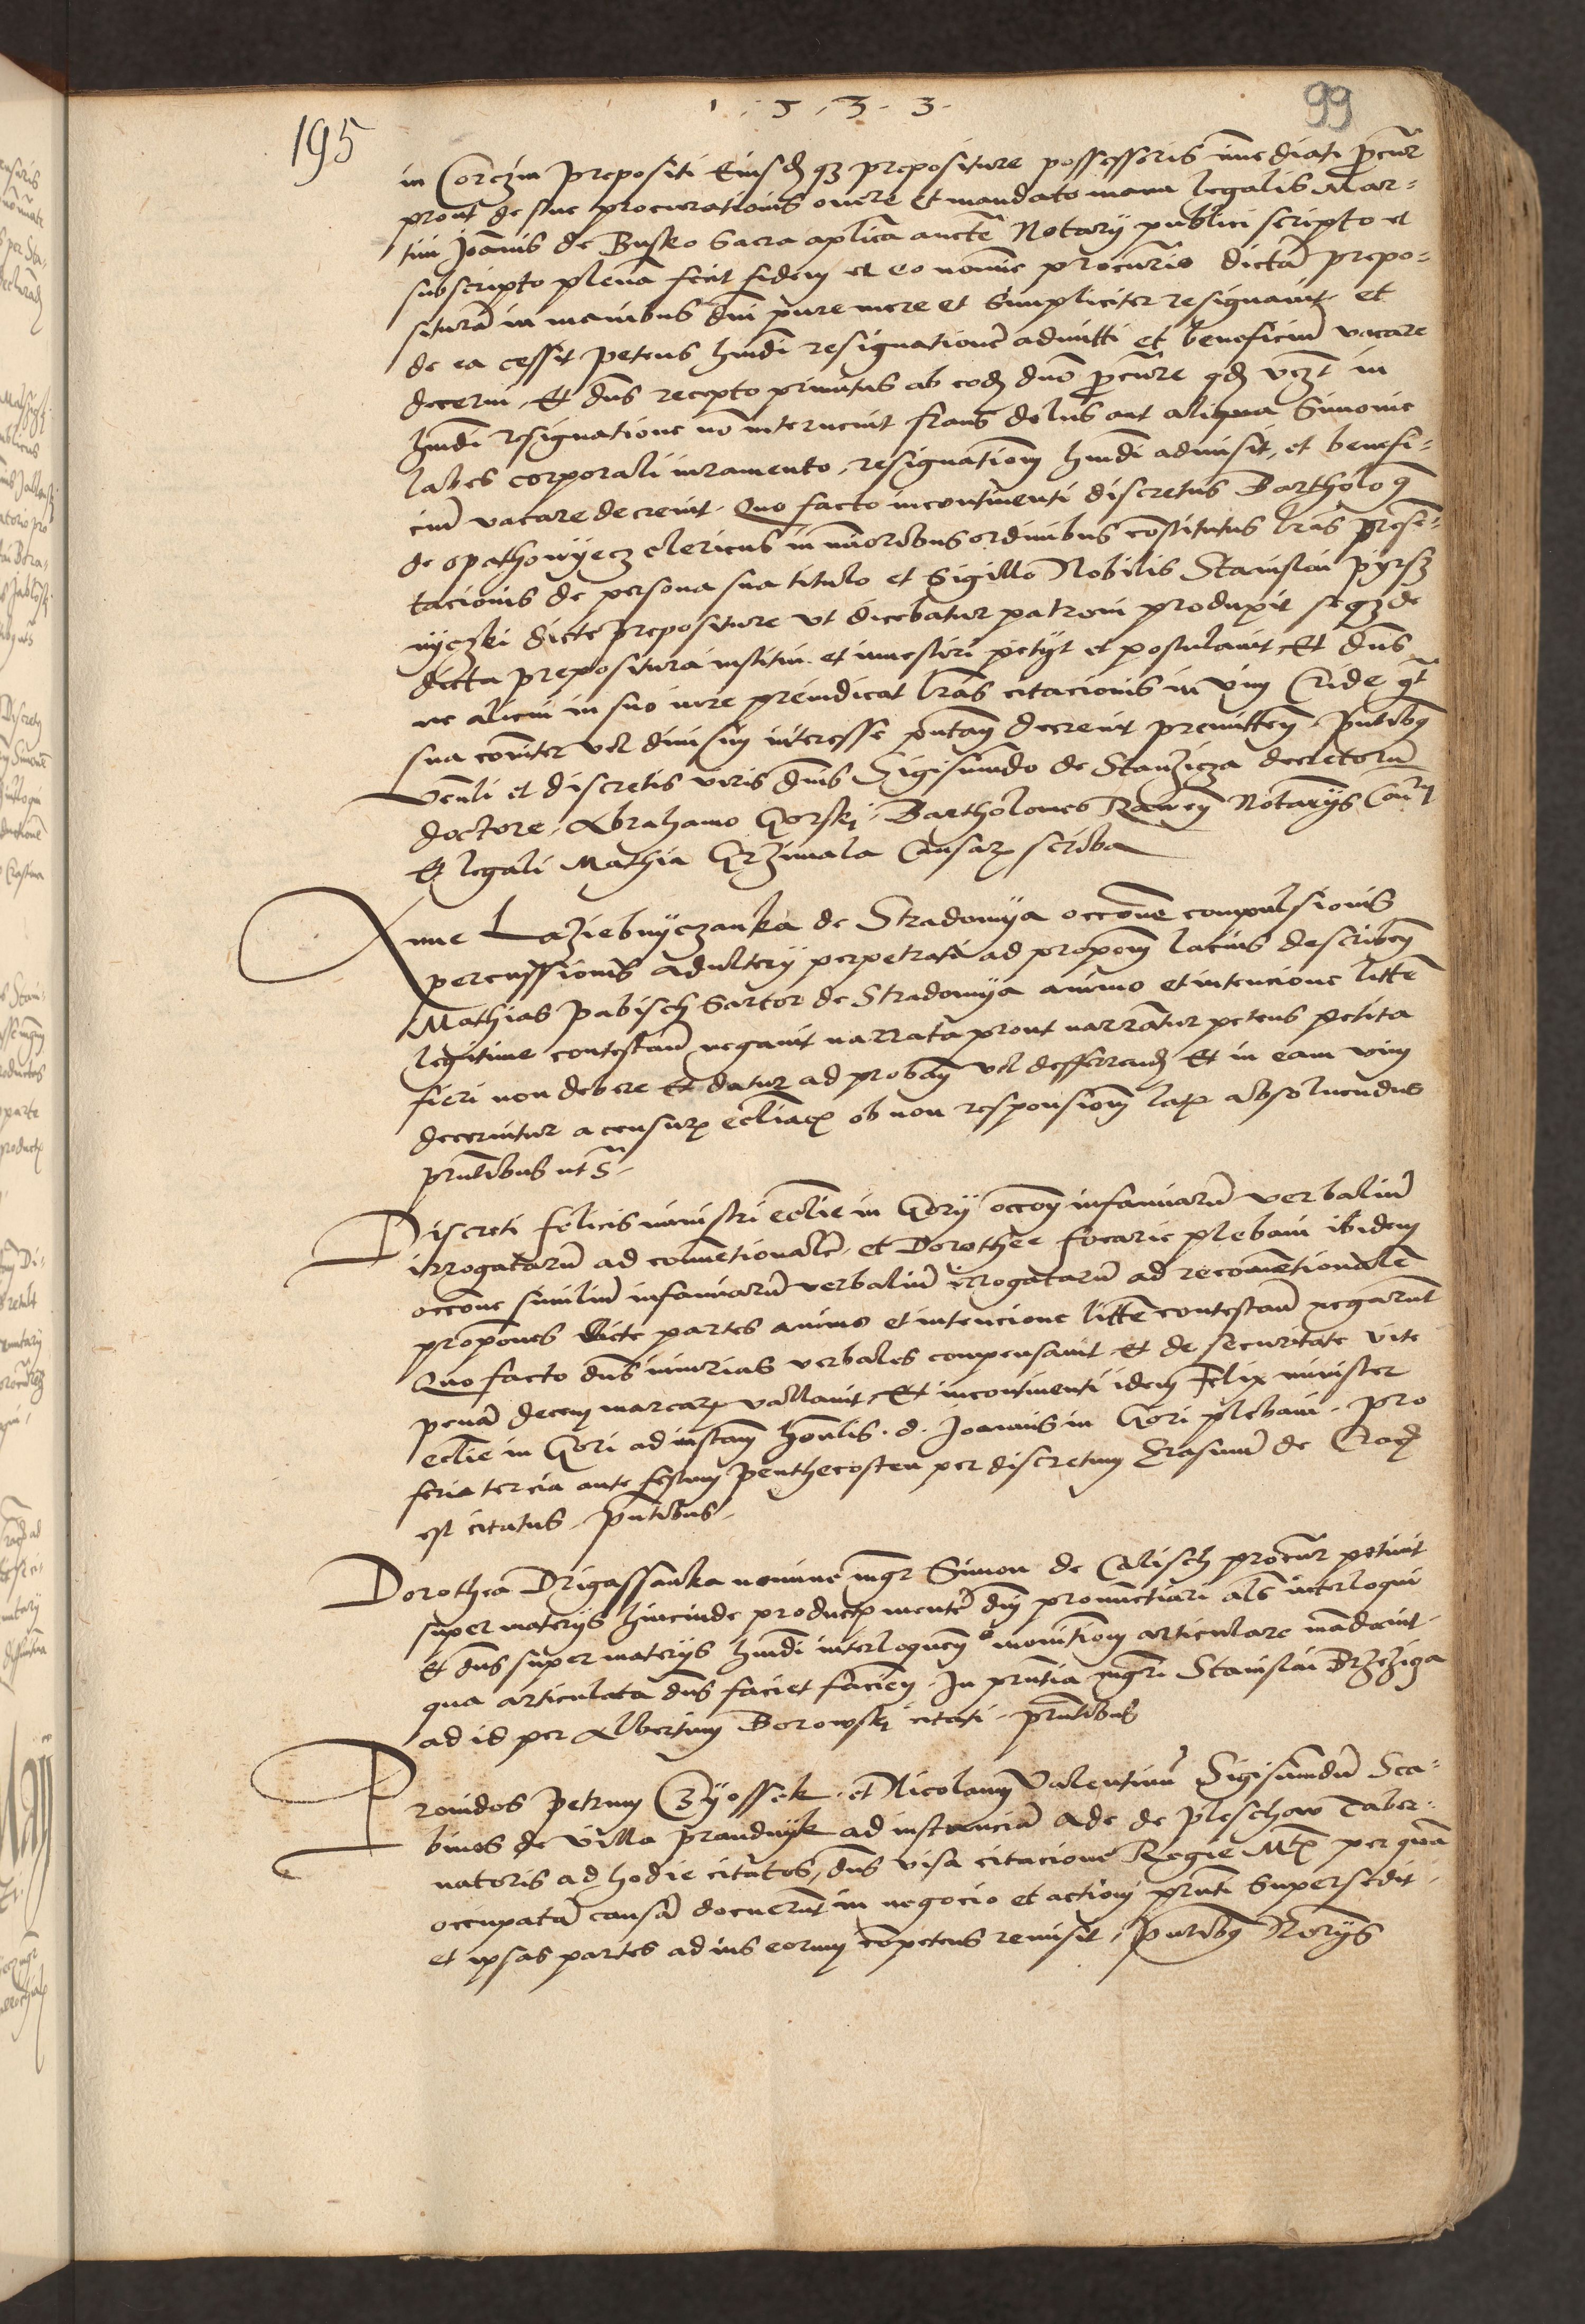 1.5.3.3.
99
195
in Corczin prepositi Eiusdqz prepositure possessoris immediati procur
prout de sue procurationis onere et mandato manu legalis Mar-
tini Joannis de Busko sacra aplica aucte Notarij publici scripto et
subscripto plena fecit fidem et eo nomine procurio dicta prepo-
situra in manibus dni pure mere et simpliciter resignauit et
de ea cessit petens hmdi resignatione admitti et beneficiu vacare
decerni. Et dns recepto primitus ab eod dno procure qd
hmdi resignatione no interuenit fraus dolus aut aliqua simonie
labes corporali iuramento, resignationem hmdi admisit, et benefi-
ciu vacare decreuit. Quo facto incontinenti discretus Bartholo9
de opathowyecz clericus in minoribus ordinibus constitutus lras prese-
tacionis de persona sua titulo et sigillo Nobilis Stanislai pyrsz
nyczski dicte prepositure vt dicebatur patroni produxit seqz de
dicta prepositura institui et inuestiri petijt et postulauit Et dns
ne alicui in suo iure preiudicat lras citacionis in vim Cride
sua coniter vel diuisim interesse putan decreuit premitten. pntibq
Venli et discretis viris dnis Sigismundo de Stanzicza decretoru
doctore, Abrahamo Gorski, Bartholomeo Notarijs
Et legali Mathia Grzimala Causarz scriba
Anne Laziebnyczanka de Stradomya occone compulsionis
percussionis adulterij perpetrati ad propom latius describen
Mathias pabisch sartor de Stradomya animo et intencione litte
legitime contestan negauit narrata prout narratur petens petita
fieri non debere Et datur ad proban vel defferend Et in eam vim
decernitur a censurz ecliacz ob non responsionem latz absoluendus
pntibus ut s.
Discreti felicis ministri eclie in Gory occom infamiaru verbaliu
irrogataru ad conuetionale, et Dorothee focarie plebani ibidem
occone similiu infamiaru verbaliu irrogataru ad reconuetionale
propones dicte partes animo et intencione litte contestan negarut
Quo facto dns iniurias verbales compensauit et de securitate vite
pena decem marcarz vallauit, Et incontinenti idem Felix minister
eclie in Gori ad instam honlis. d. Joannis in Gori plebani. pro
feria tercia ante festum penthecosten per discretum Erasmu de
est citatus. pntibus.
Dorothea Drigassanka nomine mgr Simon de Calisch procur petiuit
super materijs hincinde productz mente dni pronuctiari als interloqui
Et dns super materijs hmdi interloquen monitiom articulare madauit.
qua articulata dns faciet facien. In pntia mgri Stanislai Brzeziga
ad id per Albertum Borowski citati. pntibus
Prouidos petrum Czyossek, et Nicolaum Valentinu Sigismundu Sca-
binos de villa prandnyk ad instancia Ade de pleschow Taber-
natoris ad hodie citatos, dns visa citacione Regie Mtz per qua
occupata causa docuerut in negocio et actioni pnti supersedit.
et ipsas partes ad ius eorum competens remisit, pntibq Norijs